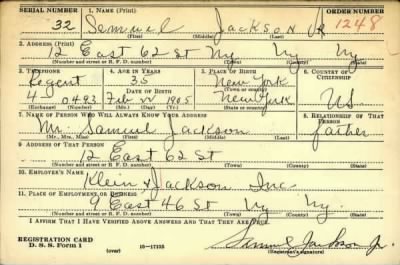 SERIAL NUMBER 1. NAME (Print) ORDER NUMBER
32 Semuel Jackson Jr 1248
(First) (Middle) (Last)
2. ADDRESS (Print)
12 East 62 St Ny Ny Ny
(Number and street or R. F. D. number) (Town) (County) (State)
3. TELEPHONE 4. AGE IN YEARS 5. PLACE OF BIRTH 6. COUNTRY OF CITIZENSHIP
Regent 35 New York
DATE OF BIRTH (Town or county)
4-0493 Feb 1905 New York US
(Exchange) (Number) (Mo.) (Day) (Yr.) (State or country)
7. NAME OF PERSON WHO WILL ALWAYS KNOW YOUR ADDRESS 8. RELATIONSHIP OF THAT PERSON
Mr. Samuel Jackson father
(Mr., Mrs., Miss) (First) (Middle) (Last)
9. ADDRESS OF THAT PERSON
12 East 62 St
(Number and street or R. F. D. number) (Town) (County) (State)
10. EMPLOYER'S NAME
Klein & Jackson Inc
11. PLACE OF EMPLOYMENT OR BUSINESS
9 East 46 St Ny Ny.
(Number and street or R. F. D. number) (Town) (County) (State)
I AFFIRM THAT I HAVE VERIFIED ABOVE ANSWERS AND THAT THEY ARE TRUE.
REGISTRATION CARD Samuel Jackson Jr.
D. S. S. Form 1 (over) 16—17105 (Registrant's signature)